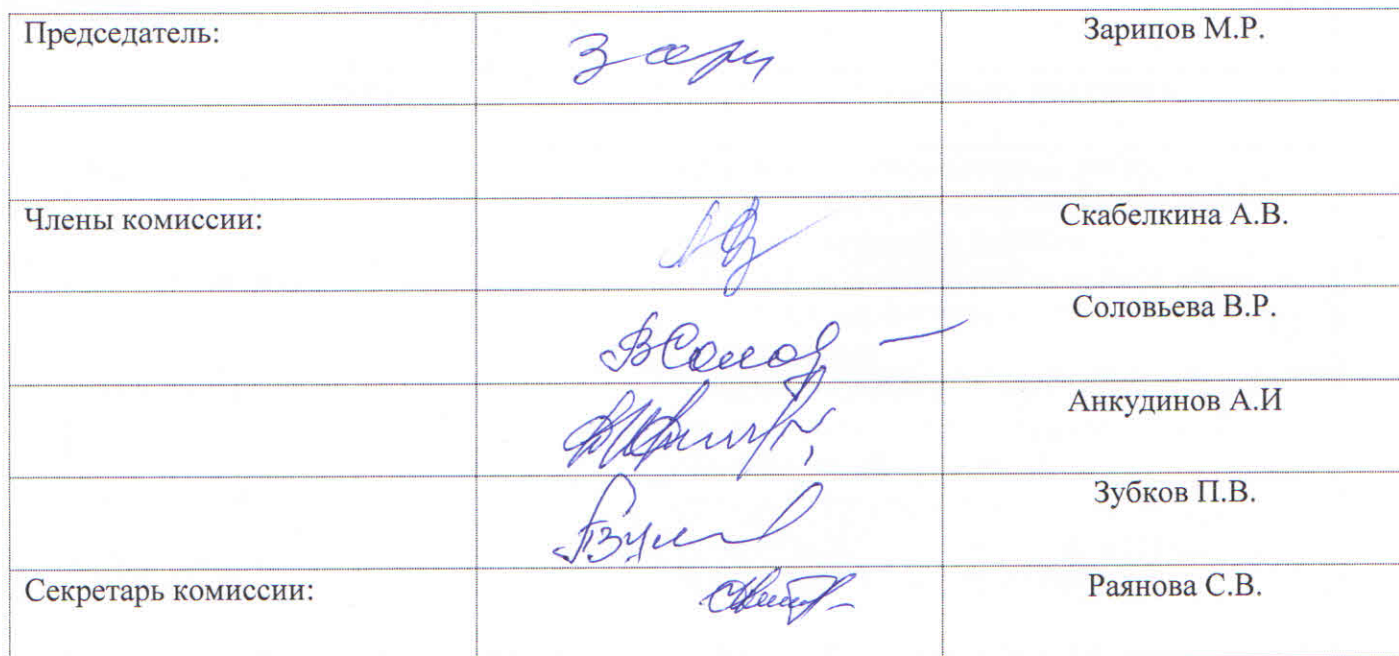 Председатель: Зарипов М.Р.
Члены комиссии: Скабелкина А.В.
Соловьева В.Р.
Анкудинов А.И
Зубков П.В.
Секретарь комиссии: Раянова С.В.